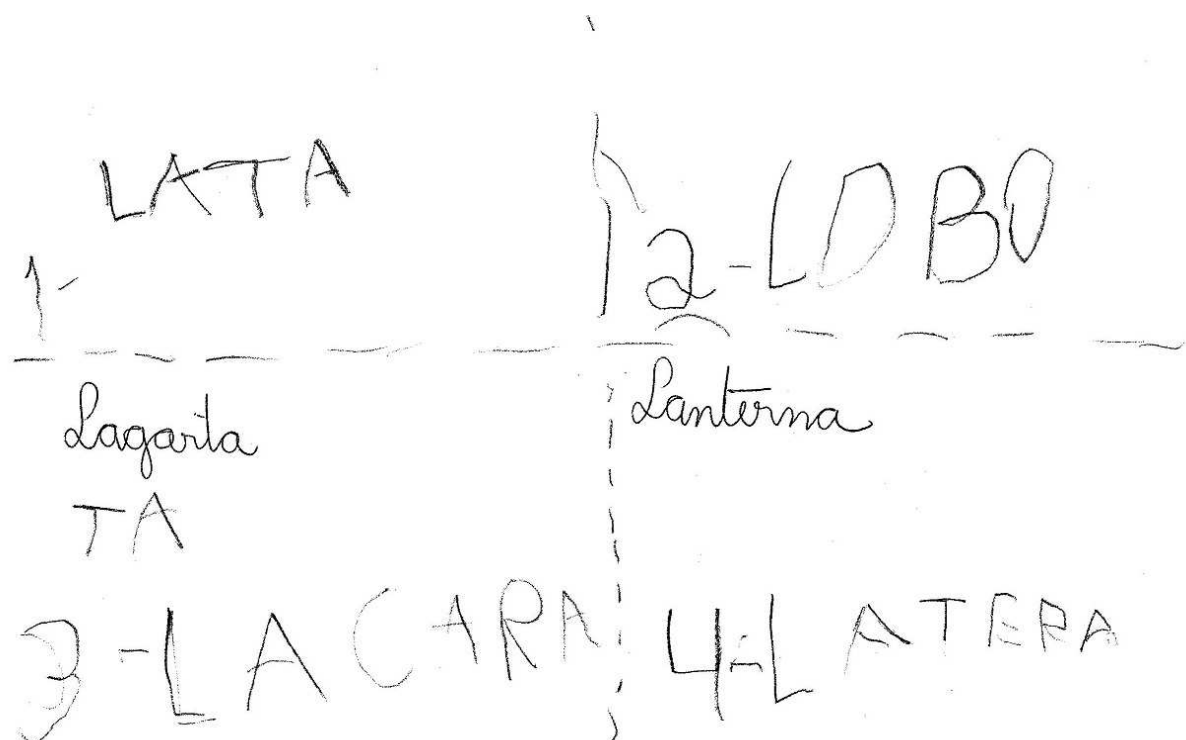 LATA
1-
2-LOBO
Lagarta
TA
3-LACARA
Lanterna
4-LATERA